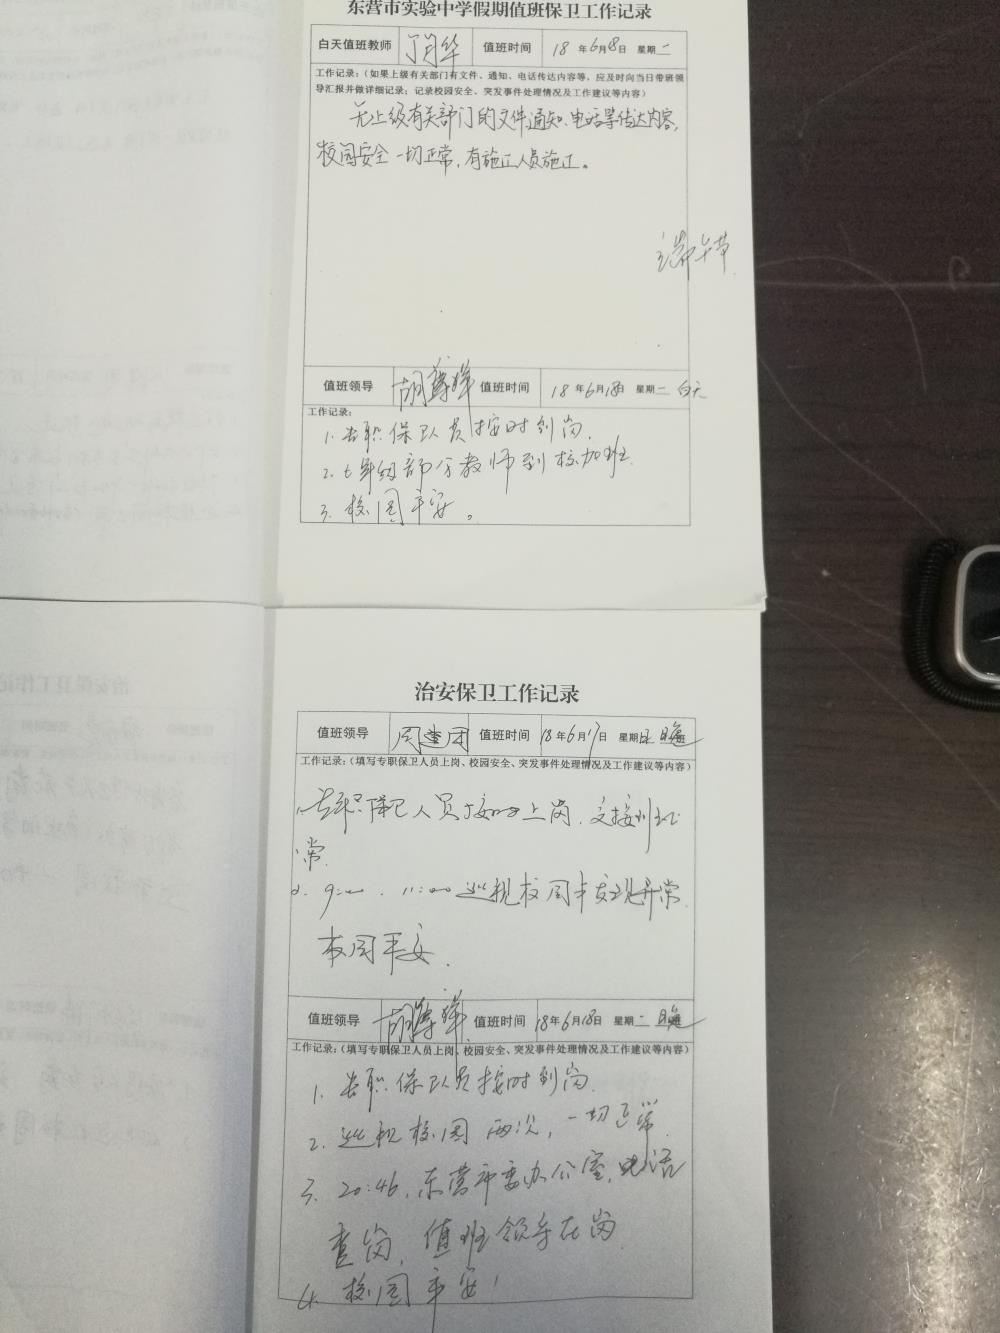 东营市实验中学假期值班保卫工作记录
白天值班教师 值班时间 18年6月18日 星期二
工作记录:(如果上级有关部门有文件、通知、电话传达内容等,应及时向当日带班领
导汇报并做详细记录;记录校园安全、突发事件处理情况及工作建议等内容)
无上级有关部门的文件、通知、电话等传达内容,
校园安全一切正常,有施工人员施工。
端午节
值班领导 胡尊祥 值班时间 18年6月18日 星期二 白天
工作记录:
1. 专职保卫人员按时到岗.
2. 七年级部分教师到校加班.
3. 校园平安。
治安保卫工作记录
值班领导 值班时间 18年6月17日 星期日 晚班
工作记录:(填写专职保卫人员上岗、校园安全、突发事件处理情况及工作建议等内容)
1. 专职保卫人员按时上岗,交接班正
常.
2. 9:00、11:00巡视校园未发现异常.
校园平安.
值班领导 胡尊祥 值班时间 18年6月18日 星期二 晚班
工作记录:(填写专职保卫人员上岗、校园安全、突发事件处理情况及工作建议等内容)
1. 专职保卫人员按时到岗.
2. 巡视校园两次,一切正常.
3. 20:46,东营市委办公室,电话
查岗,值班领导在岗
4. 校园平安!